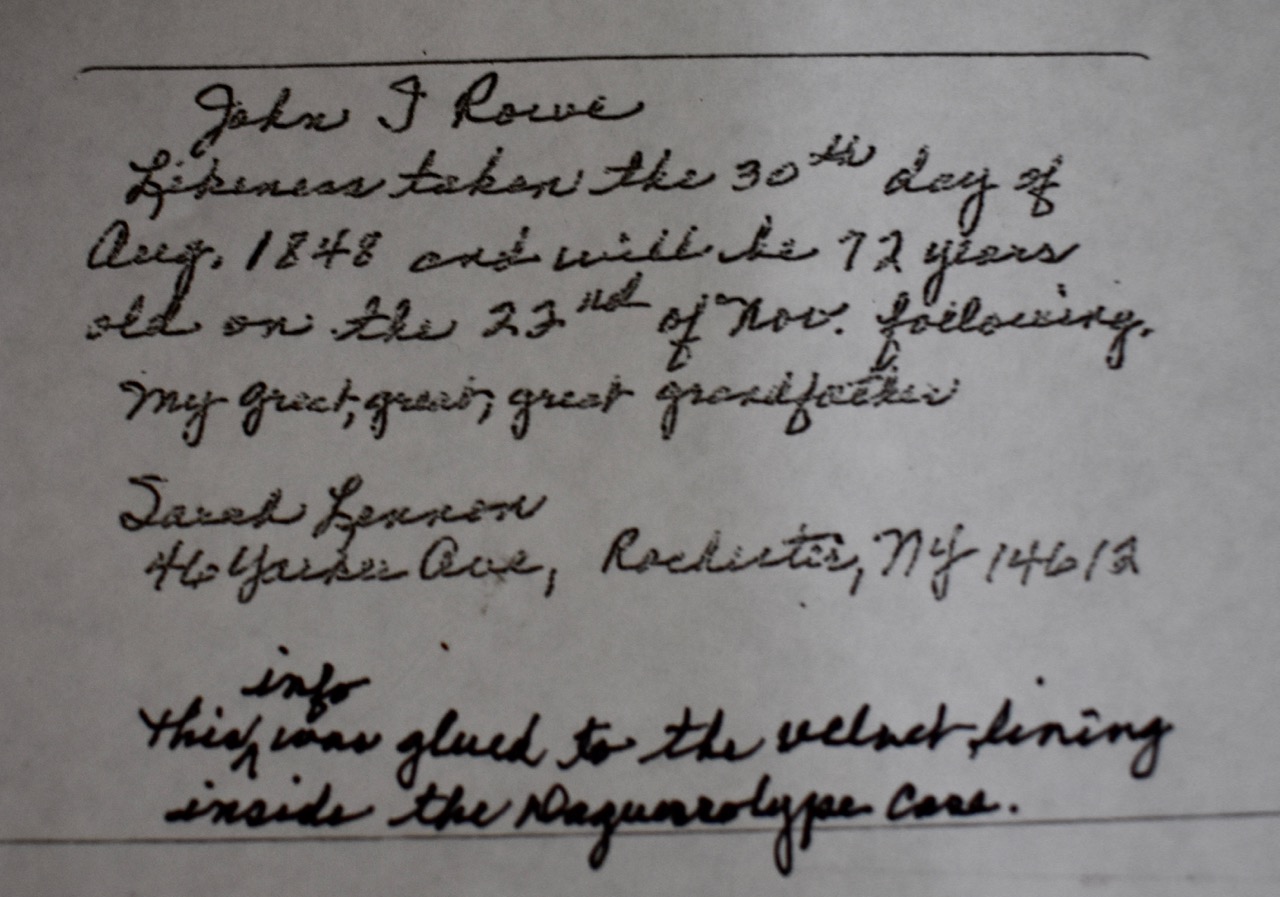 John I Rowe
Likeness taken the 30th day of
Aug. 1848 and will be 72 years
old on the 22nd of Nov. following.
My great, great, great grandfather
Sarah Lennon
46 Ave, Rochester, NY 14612
info
this was glued to the velvet lining
inside the Daguerrotype Case.